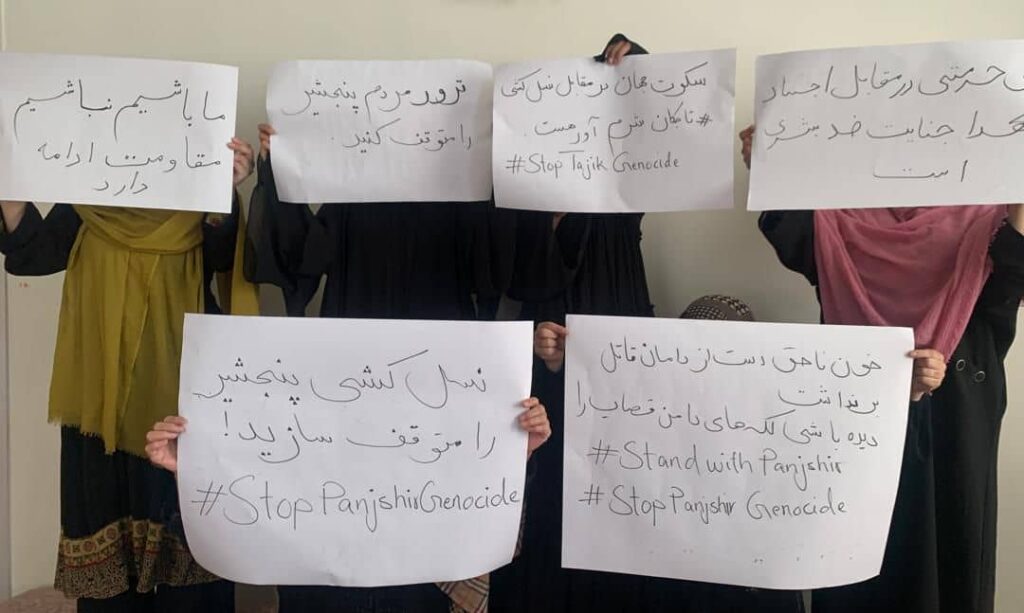 ما باشیم نباشیم
مقاومت ادامه
دارد
ترور مردم پنجشیر
را متوقف کنید.
سکوت جهان در مقابل نسل کشی
#تاجکان شرم آور هست.
#Stop Tajik Genocide
حرمتی در مقابل اجساد
جنایت ضد بشری
است
نسل کشی پنجشیر
را متوقف سازید!
#StopPanjshirGenocide
خون ناحق دست از دامان قاتل
برنداشت
دیده باشی لکه‌های دامن قصاب را
#Stand with Panjshir
#StopPanjshir Genocide